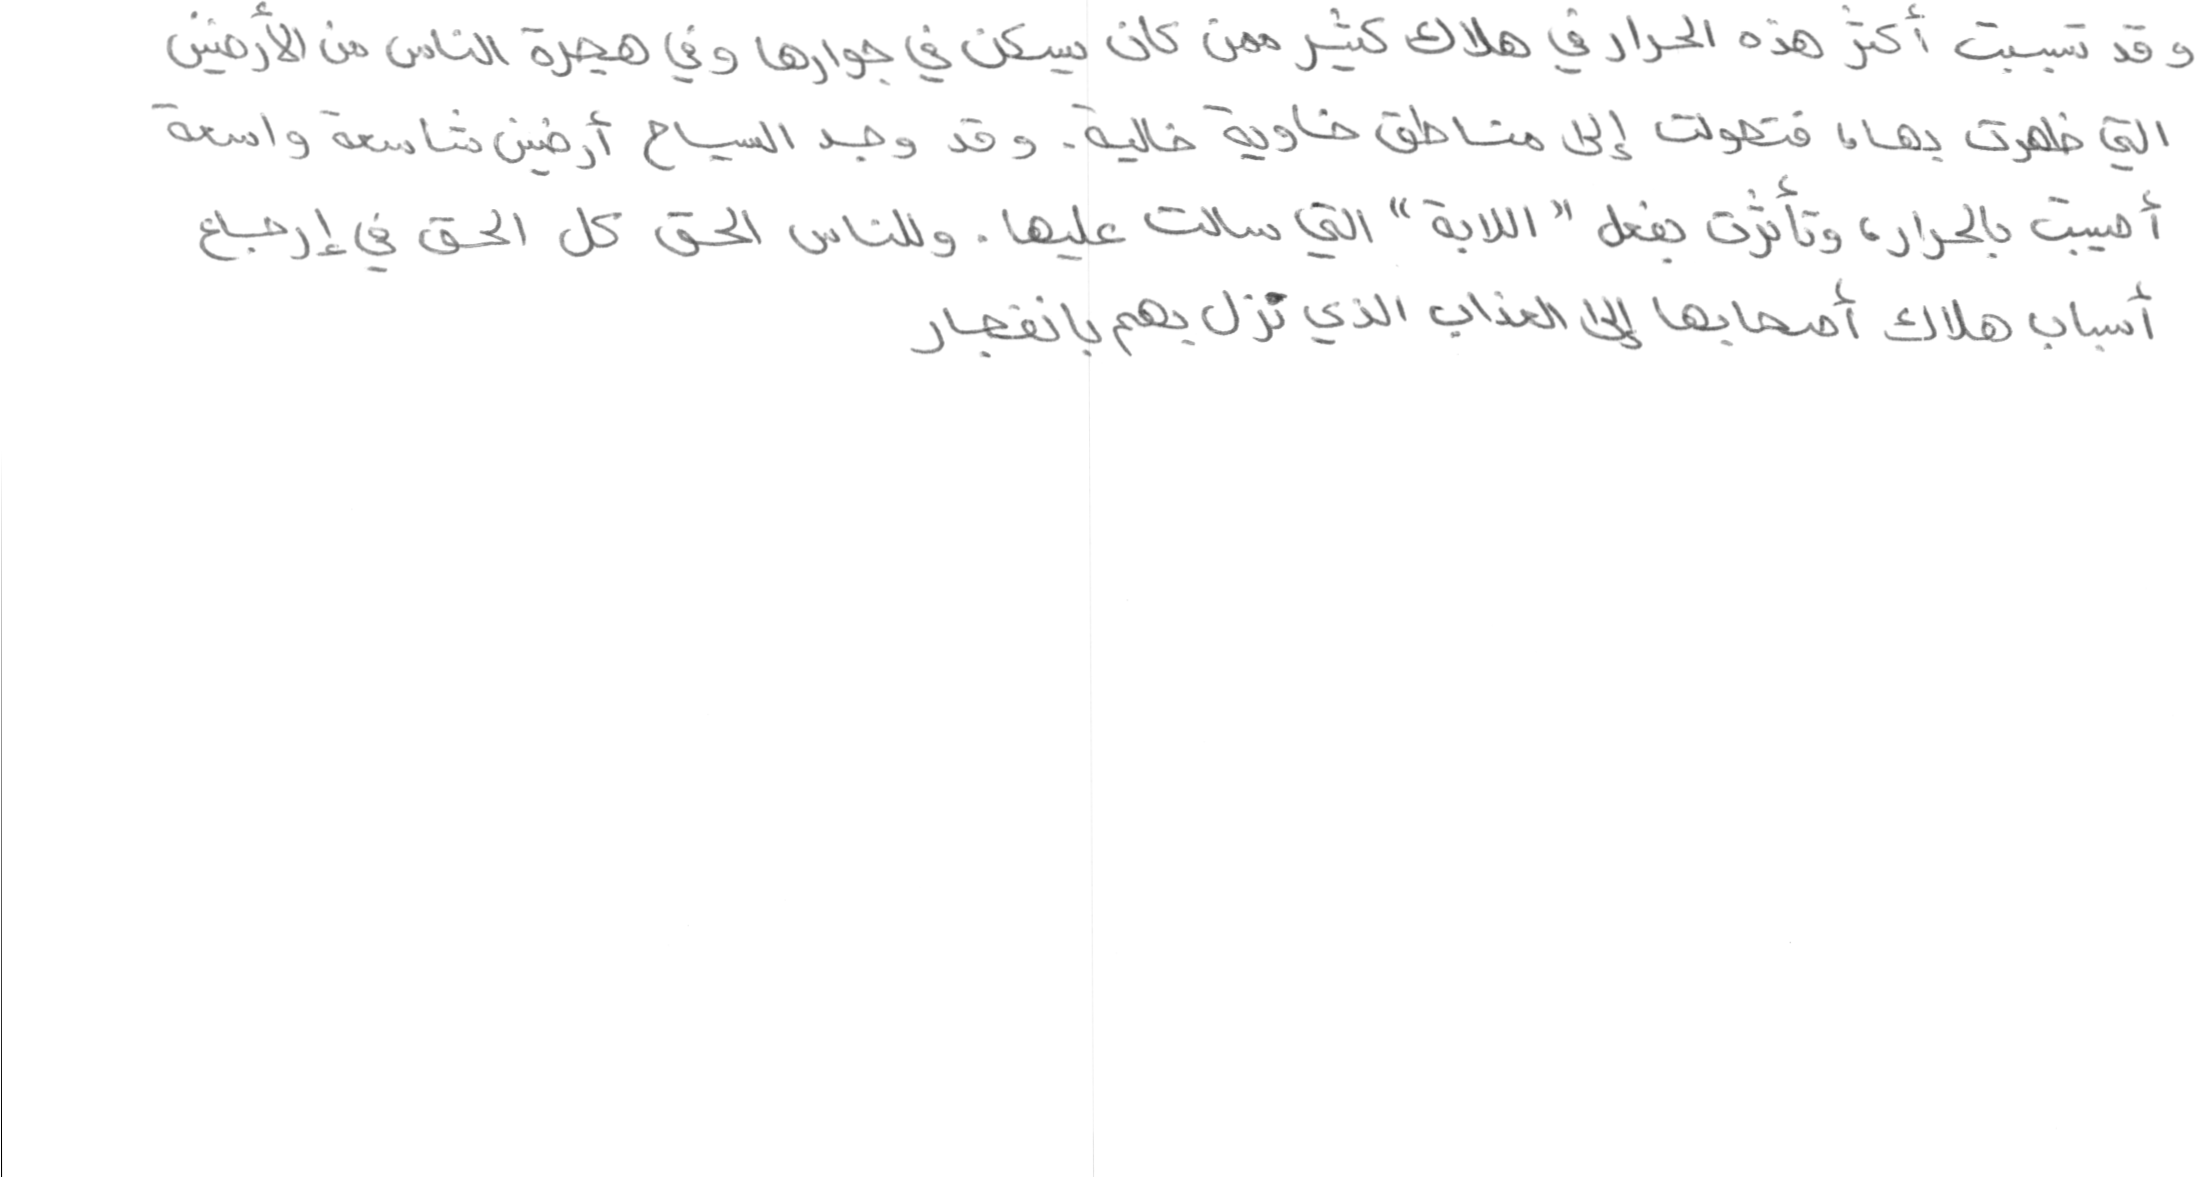 وقد تسببت أكثر هذه الحرار في هلاك كثير ممن كان يسكن في جوارها وفي هجرة الناس من الأرضين
التي ظهرت بها، فتحولت إلى مناطق خاوية خالية. وقد وجد السياح أرضين شاسعة واسعة
أصيبت بالحرار، وتأثرت بفعل "اللابة" التي سالت عليها. وللناس الحق كل الحق في إرجاع
أسباب هلاك أصحابها إلى العذاب الذي نزل بهم بانفجار